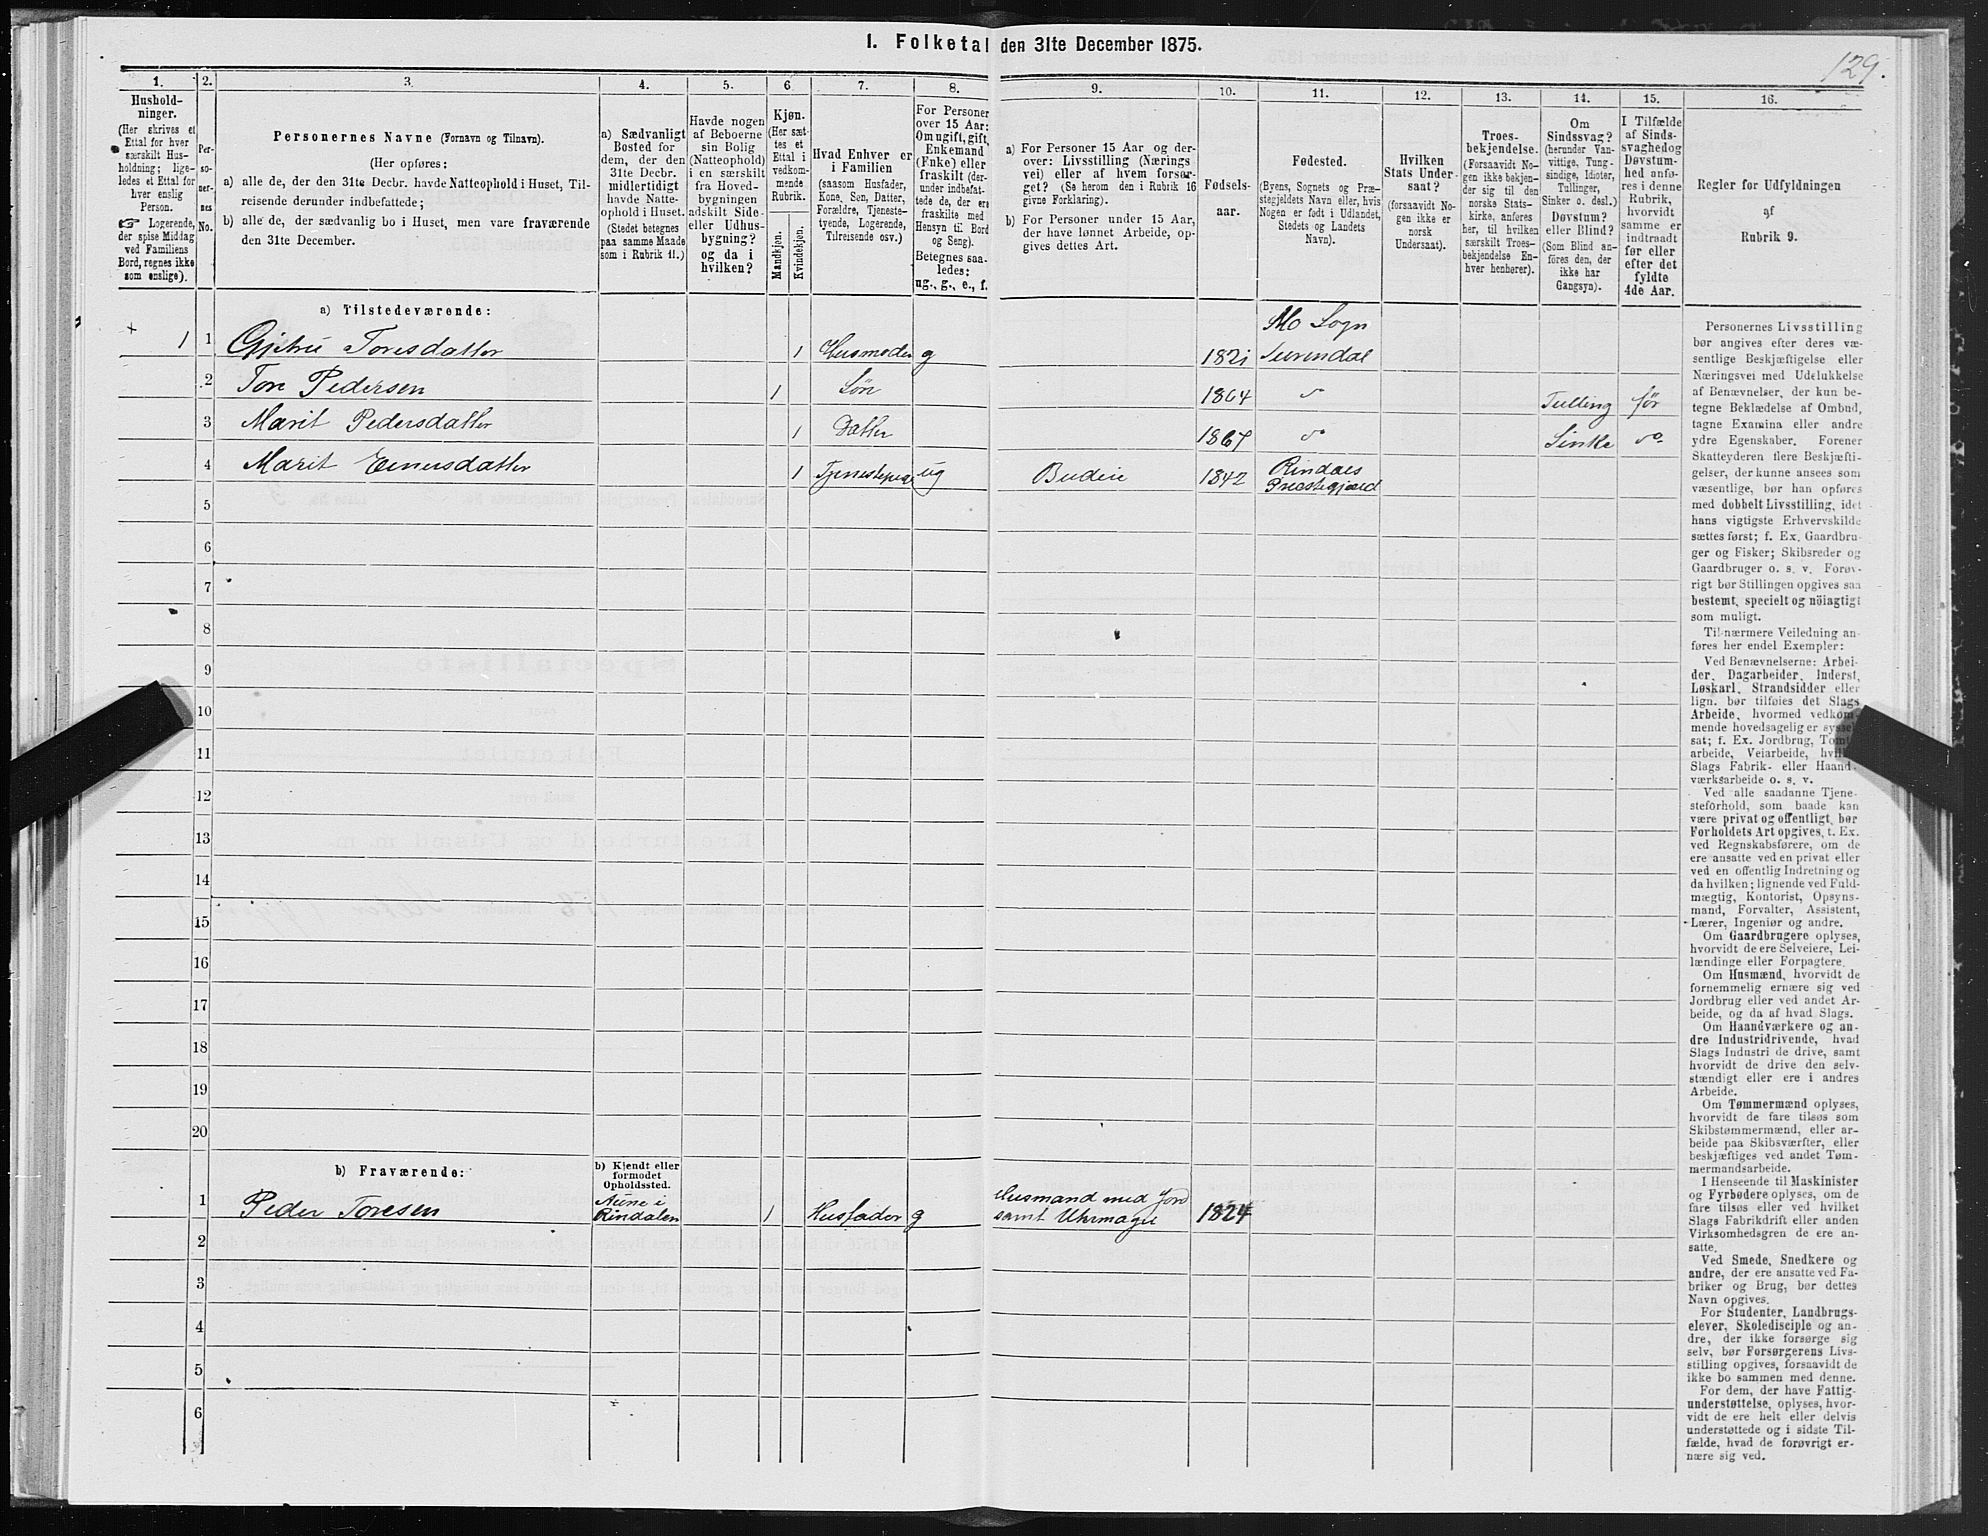 129.
I. Folketal den 31te December 1875.
1.
Hushold-
ninger.
(Her skrives et
Ettal for hver
særskilt Hus-
holdning; lige-
ledes et Ettal for
hver enslig
Person.
☞ Logerende,
der spise Middag
ved Familiens
Bord, regnes ikke
som enslige).
2.
Per-
so-
ner-
nes
No.
3.
Personernes Navne (Fornavn og Tilnavn).
(Her opføres:
a) alle de, der den 31te Decbr. havde Natteophold i Huset, Til-
reisende derunder indbefattede;
b) alle de, der sædvanlig bo i Huset, men vare fraværende
den 31te December.
4.
a) Sædvanligt
Bosted for
dem, der den
31te Decbr.
midlertidigt
havde Natte-
ophold i Huset.
(Stedet betegnes
paa samme Maade
som i Rubrik 11.)
5.
Havde nogen
af Beboerne
sin Bolig
(Natteophold)
i en særskilt
fra Hoved-
bygningen
adskilt Side-
eller Udhus-
bygning?
og da i
hvilken?
6
Kjøn.
(Her sæt-
tes et
Ettal i
vedkom-
mende
Rubrik.
Mandkjøn.
Kvindekjøn.
7.
Hvad Enhver er
i Familien
(saasom Husfader,
Kone, Søn, Datter,
Forældre, Tjeneste-
tyende, Logerende,
Tilreisende osv.)
8.
For Personer
over 15 Aar:
Om ugift, gift,
Enkemand
(Enke) eller
fraskilt (der-
under indbefat-
tede de, der ere
fraskilte med
Hensyn til Bord
og Seng).
Betegnes saa-
ledes:
ug., g., e., f.
9.
a) For Personer 15 Aar og der-
over: Livsstilling (Nærings
vei) eller af hvem forsør-
get? (Se herom den i Rubrik 16
givne Forklaring).
b) For Personer under 15 Aar,
der have lønnet Arbeide, op-
gives dettes Art.
10.
Fødsels-
aar.
11.
Fødested.
(Byens, Sognets og Præ-
stegjeldets Navn eller, hvis
Nogen er født i Udlandet,
Stedets og Landets
Navn).
12.
Hvilken
Stats Under-
saat?
(forsaavidt No-
gen ikke er
norsk
Undersaat).
13.
Troes-
bekjendelse.
(Forsaavidt No-
gen ikke bekjen-
der sig til den
norske Stats-
kirke, anføres
her, til hvilken
særskilt Troes-
bekjendelse En-
hver henhører).
14.
Om
Sindssvag?
(herunder Van-
vittige, Tung-
sindige, Idioter,
Tullinger,
Sinker o. desl.)
Døvstum?
eller Blind?
(Som Blind an-
føres den, der
ikke har
Gangsyn).
15.
I Tilfælde
af Sinds-
svaghed og
Døvstum-
hed anfø-
res i denne
Rubrik,
hvorvidt
samme er
indtraadt
før eller
efter det
fyldte
4de Aar.
16.
Regler for Udfyldningen
af
Rubrik 9.
a) Tilstedeværende:
Mo Sogn
1 1 Gjetru Toresdatter 1 Husmoder g 1821 Surendal
2 Tore Pedersen 1 Søn 1864 do Tulling før
3 Marit Pedersdatter 1 Datter 1867 do Sinke do
4 Marit Einersdatter 1 Tjenestepige ug Budeie 1842 Rindales
Præstegjæld
5
6
7
8
9
10
11
12
13
14
15
16
17
18
19
20
b) Fraværende:
b) Kjendt eller
formodet
Opholdssted.
1 Peder Toresen Aune i
Rindalen 1 Husfader g Husmand med Jord
samt Uhrmager 1824
2
3
4
5
6
Personernes Livsstilling
bør angives efter deres væ-
sentlige Beskjæftigelse eller
Næringsvei med Udelukkelse
af Benævnelser, der kun be-
tegne Beklædelse af Ombud,
tagne Examina eller andre
ydre Egenskaber. Forener
Skatteyderen flere Beskjæfti-
gelser, der kunne ansees som
væsentlige, bør han opføres
med dobbelt Livsstilling, idet
hans vigtigste Erhvervskilde
sættes først; f. Ex. Gaardbru-
ger og Fisker; Skibsreder og
Gaardbruger o. s. v. Forøv-
rigt bør Stillingen opgives saa
bestemt, specielt og nöiagtigt
som muligt.
Til nærmere Veiledning an-
føres her endel Exempler:
Ved Benævnelserne: Arbei-
der, Dagarbeider, Inderst,
Løskarl, Strandsidder eller
lign. bør tilføies det Slags
Arbeide, hvormed vedkom-
mende hovedsagelig er syssel-
sat; f. Ex. Jordbrug, Tomt-
arbeide, Veiarbeide, hvilket
Slags Fabrik- eller Haand-
værksarbeide o. s. v.
Ved alle saadanne Tjene-
steforhold, som baade kan
være privat og offentligt, bør
Forholdets Art opgives, t. Ex.
ved Regnskabsførere, om de
ere ansatte ved en privat eller
ved en offentlig Indretning og
da hvilken; lignende ved Fuld-
mægtig, Kontorist, Opsyns-
mand, Forvalter, Assistent,
Lærer, Ingeniør og andre.
Om Gaardbrugere oplyses,
hvorvidt de ere Selveiere, Lei-
lændinge eller Forpagtere.
Om Husmænd, hvorvidt de
fornemmelig ernære sig ved
Jordbrug eller ved andet Ar-
beide, og da af hvad Slags.
Om Haandværkere og an-
dre Industridrivende, hvad
Slags Industri de drive, samt
hvorvidt de drive den selv-
stændigt eller ere i andres
Arbeide.
Om Tømmermænd oplyses,
hvorvidt de fare tilsøs som
Skibstømmermænd, eller ar-
beide paa Skibsværfter, eller
beskjæftiges ved andet Tøm-
mermandsarbeide.
I Henseende til Maskinister
og Fyrbødere oplyses, om de
fare tilsøs eller ved hvilket
Slags Fabrikdrift eller anden
Virksomhedsgren de ere an-
satte.
Ved Smede, Snedkere og
andre, der ere ansatte ved Fa-
briker og Brug, bør dettes
Navn opgives.
For Studenter, Landbrugs-
elever, Skoledisciple og an-
dre, der ikke forsørge sig
selv, bør Forsørgerens Livs-
stilling opgives, forsaavidt de
ikke bo sammen med denne.
For dem, der have Fattig-
understøttelse, oplyses, hvor-
vidt de ere helt eller delvis
understøttede og i sidste Til-
fælde, hvad de forøvrigt er-
nære sig ved.